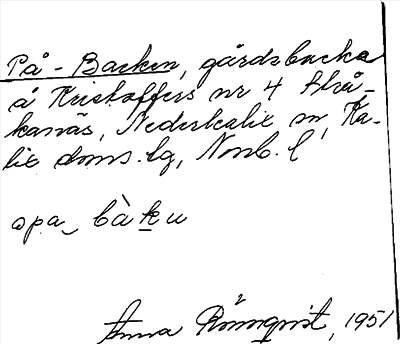 På-Backen, gårdsbacka
å Kristoffers nr 4 Strå-
kanäs, Nederkalix sn, Ka-
lix doms.lg, Norrb. l
opa bàku
Anna Rönnqvist, 1951